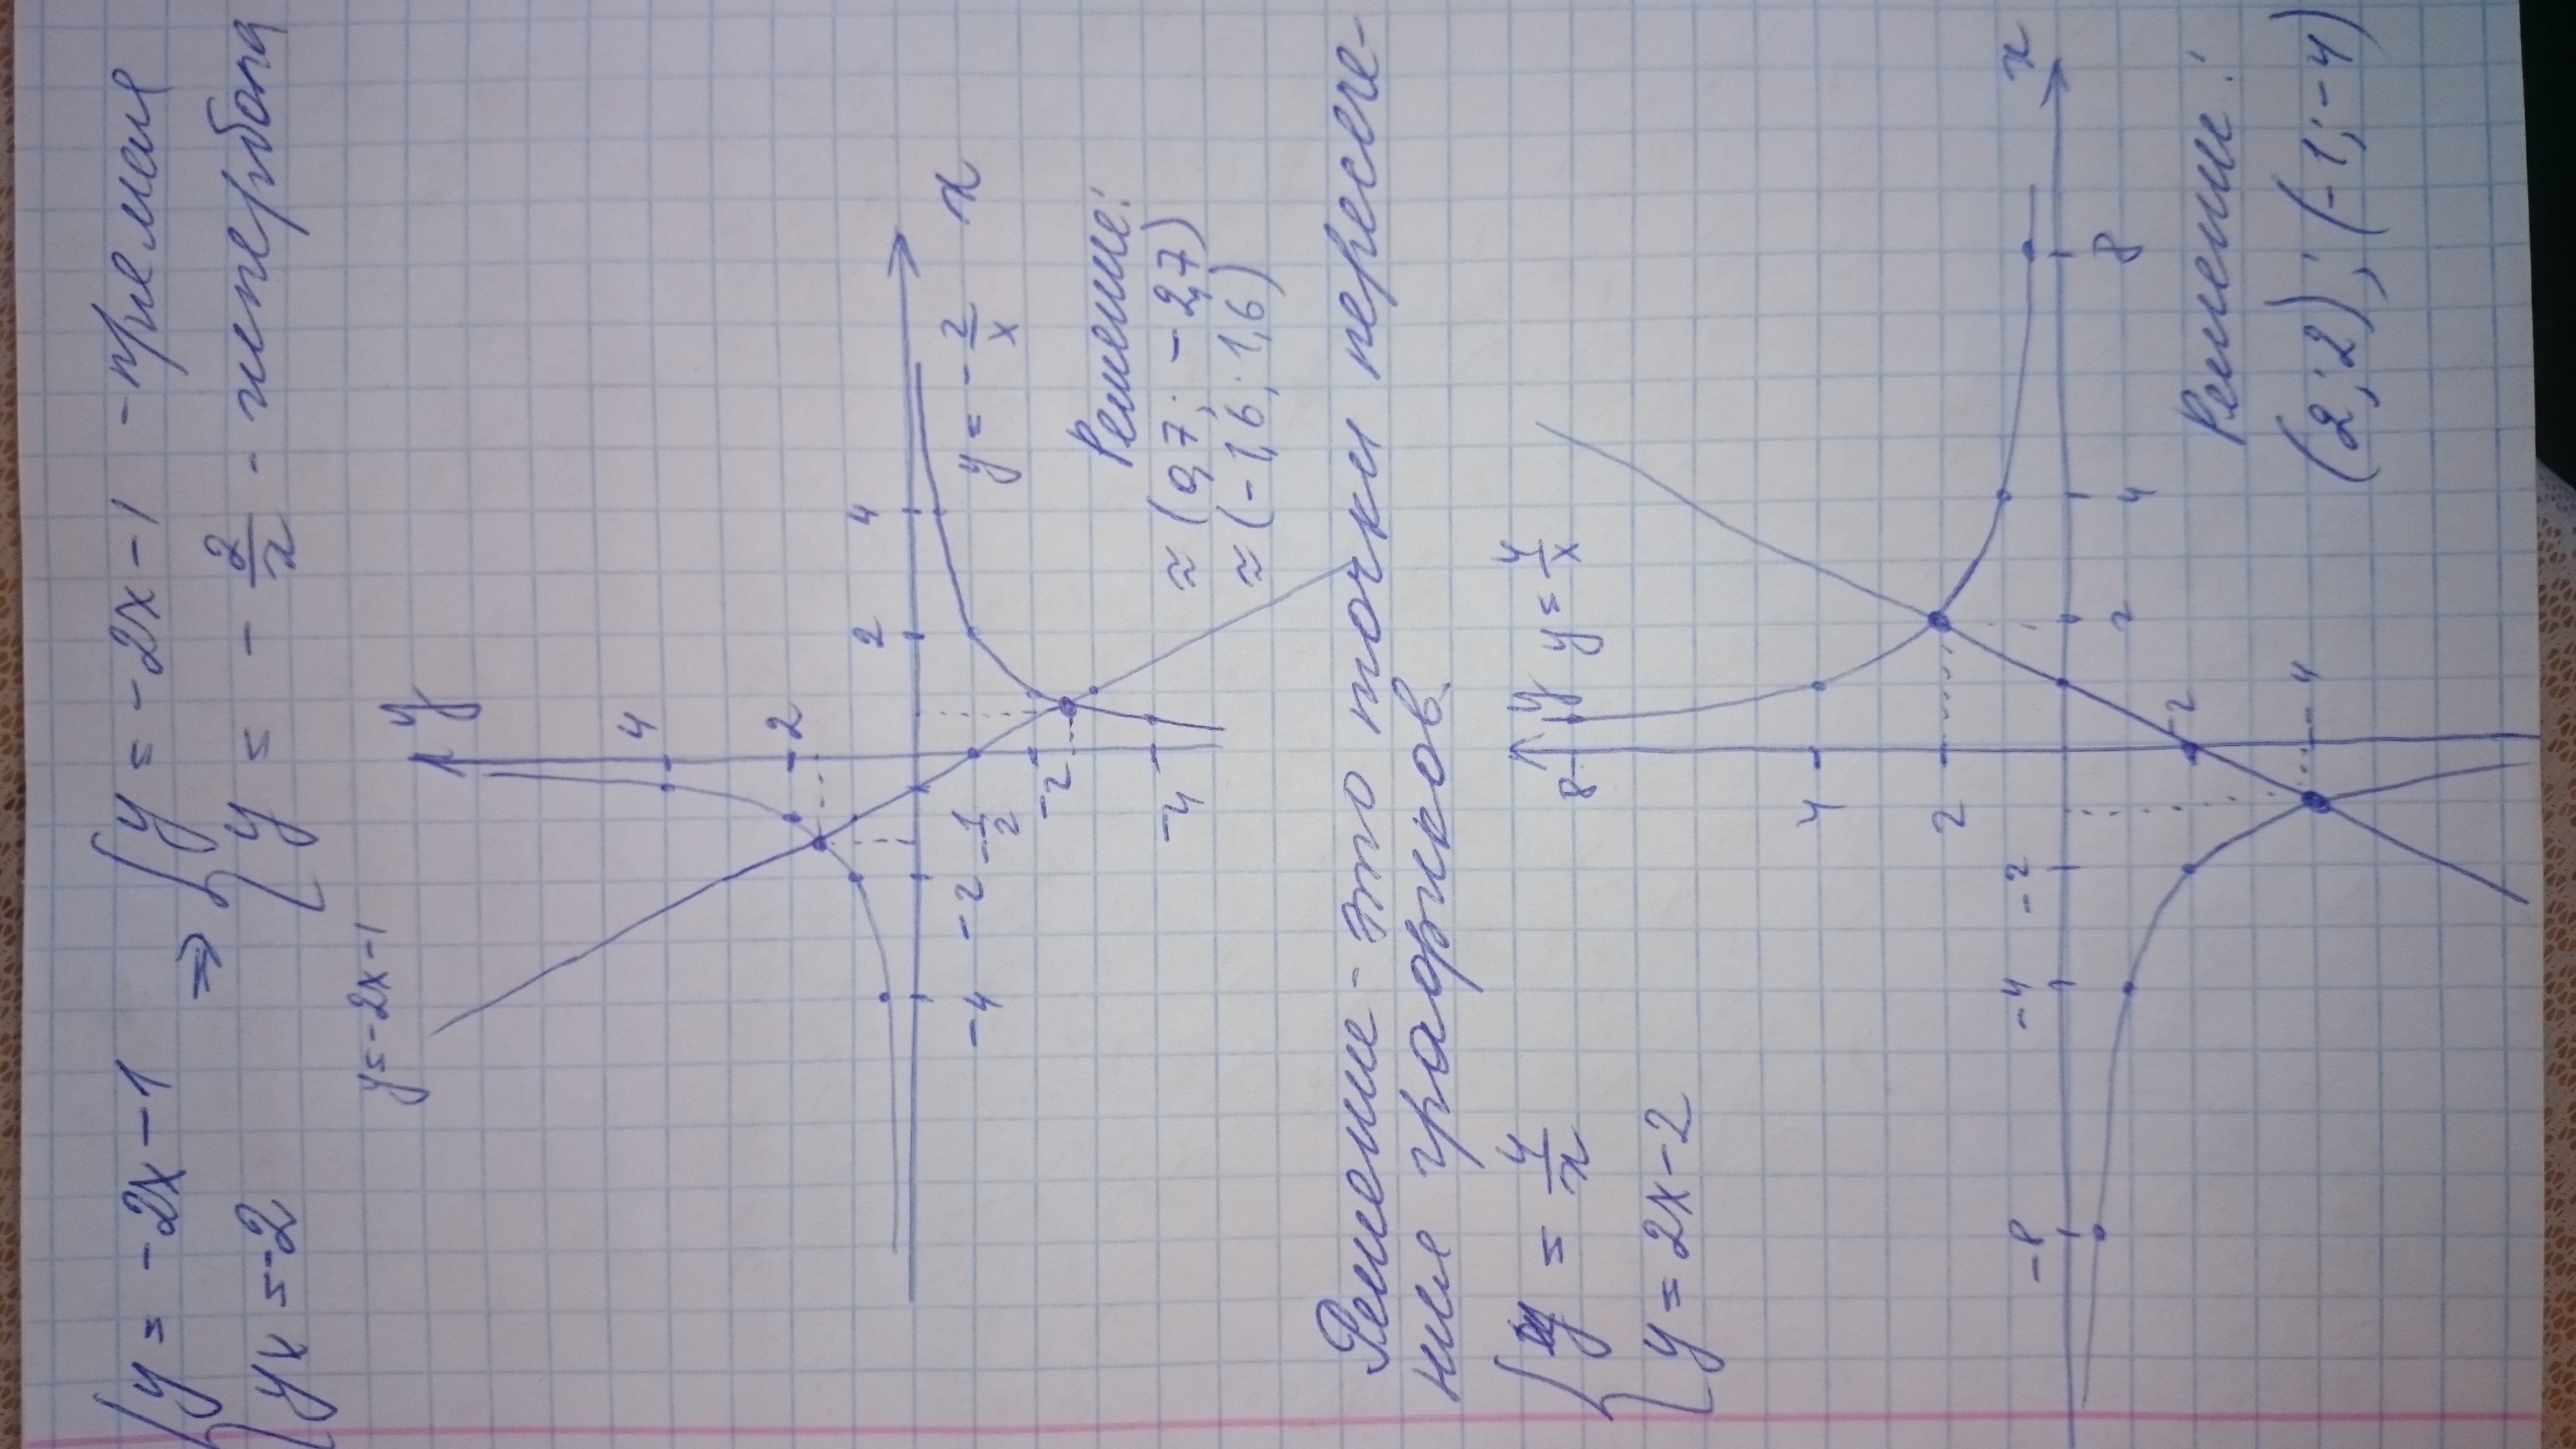 { y = -2x - 1 ⇒ { y = -2x - 1 - прямая
{ yx = -2 { y = - 2/x - гипербола
y = -2x - 1
y
4
2
-4 -2 -1/2
2 4
x
-2
-4
y = - 2/x
Решение:
≈ (0,7; -2,7)
≈ (-1,6; 1,6)
Решение - это точки пересече-
ния графиков
{ y = 4/x
{ y = 2x - 2
y
y = 4/x
8
4
2
-8 -4 -2
2 4 8
x
-2
-4
Решение:
(2; 2); (-1; -4)